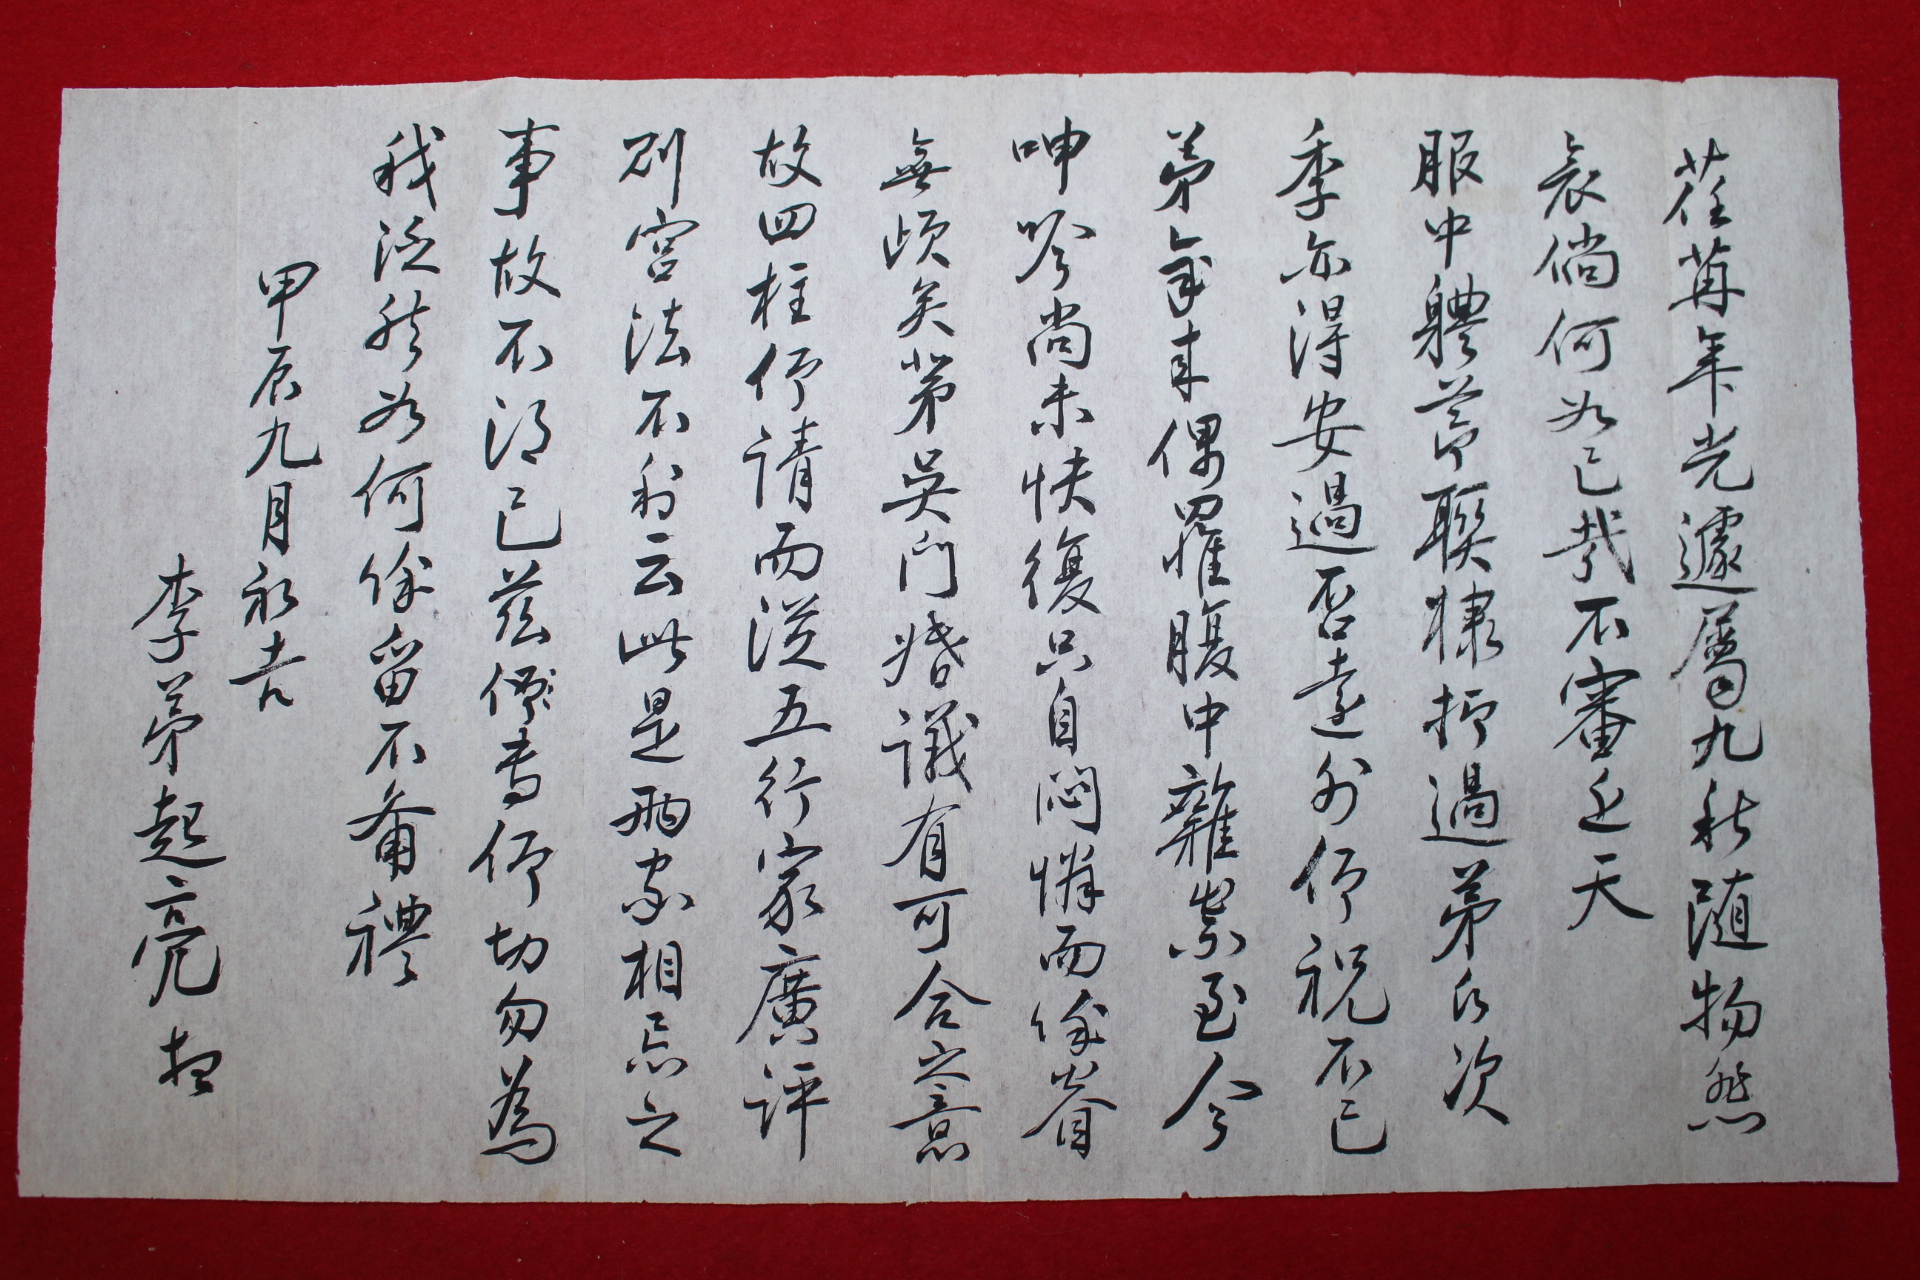 荏苒年光遽屬九秋隨物愴
哀倘何如已哉不審辰天
服中體節聯棣打過弟氏次
季亦得安過否遠外仰祝不已
弟年來偶罹腹中雜祟至今
呻吟尚未快復只自悶憐而餘省
無頃矣第吳門婚議有可合之意
故四柱仰請而從五行家廣評
則宮法不利云此是兩家相忌之
事故不得已茲修書仰切勿為
我泛然如何餘留不備禮
甲辰九月初吉
李弟起亮 拜